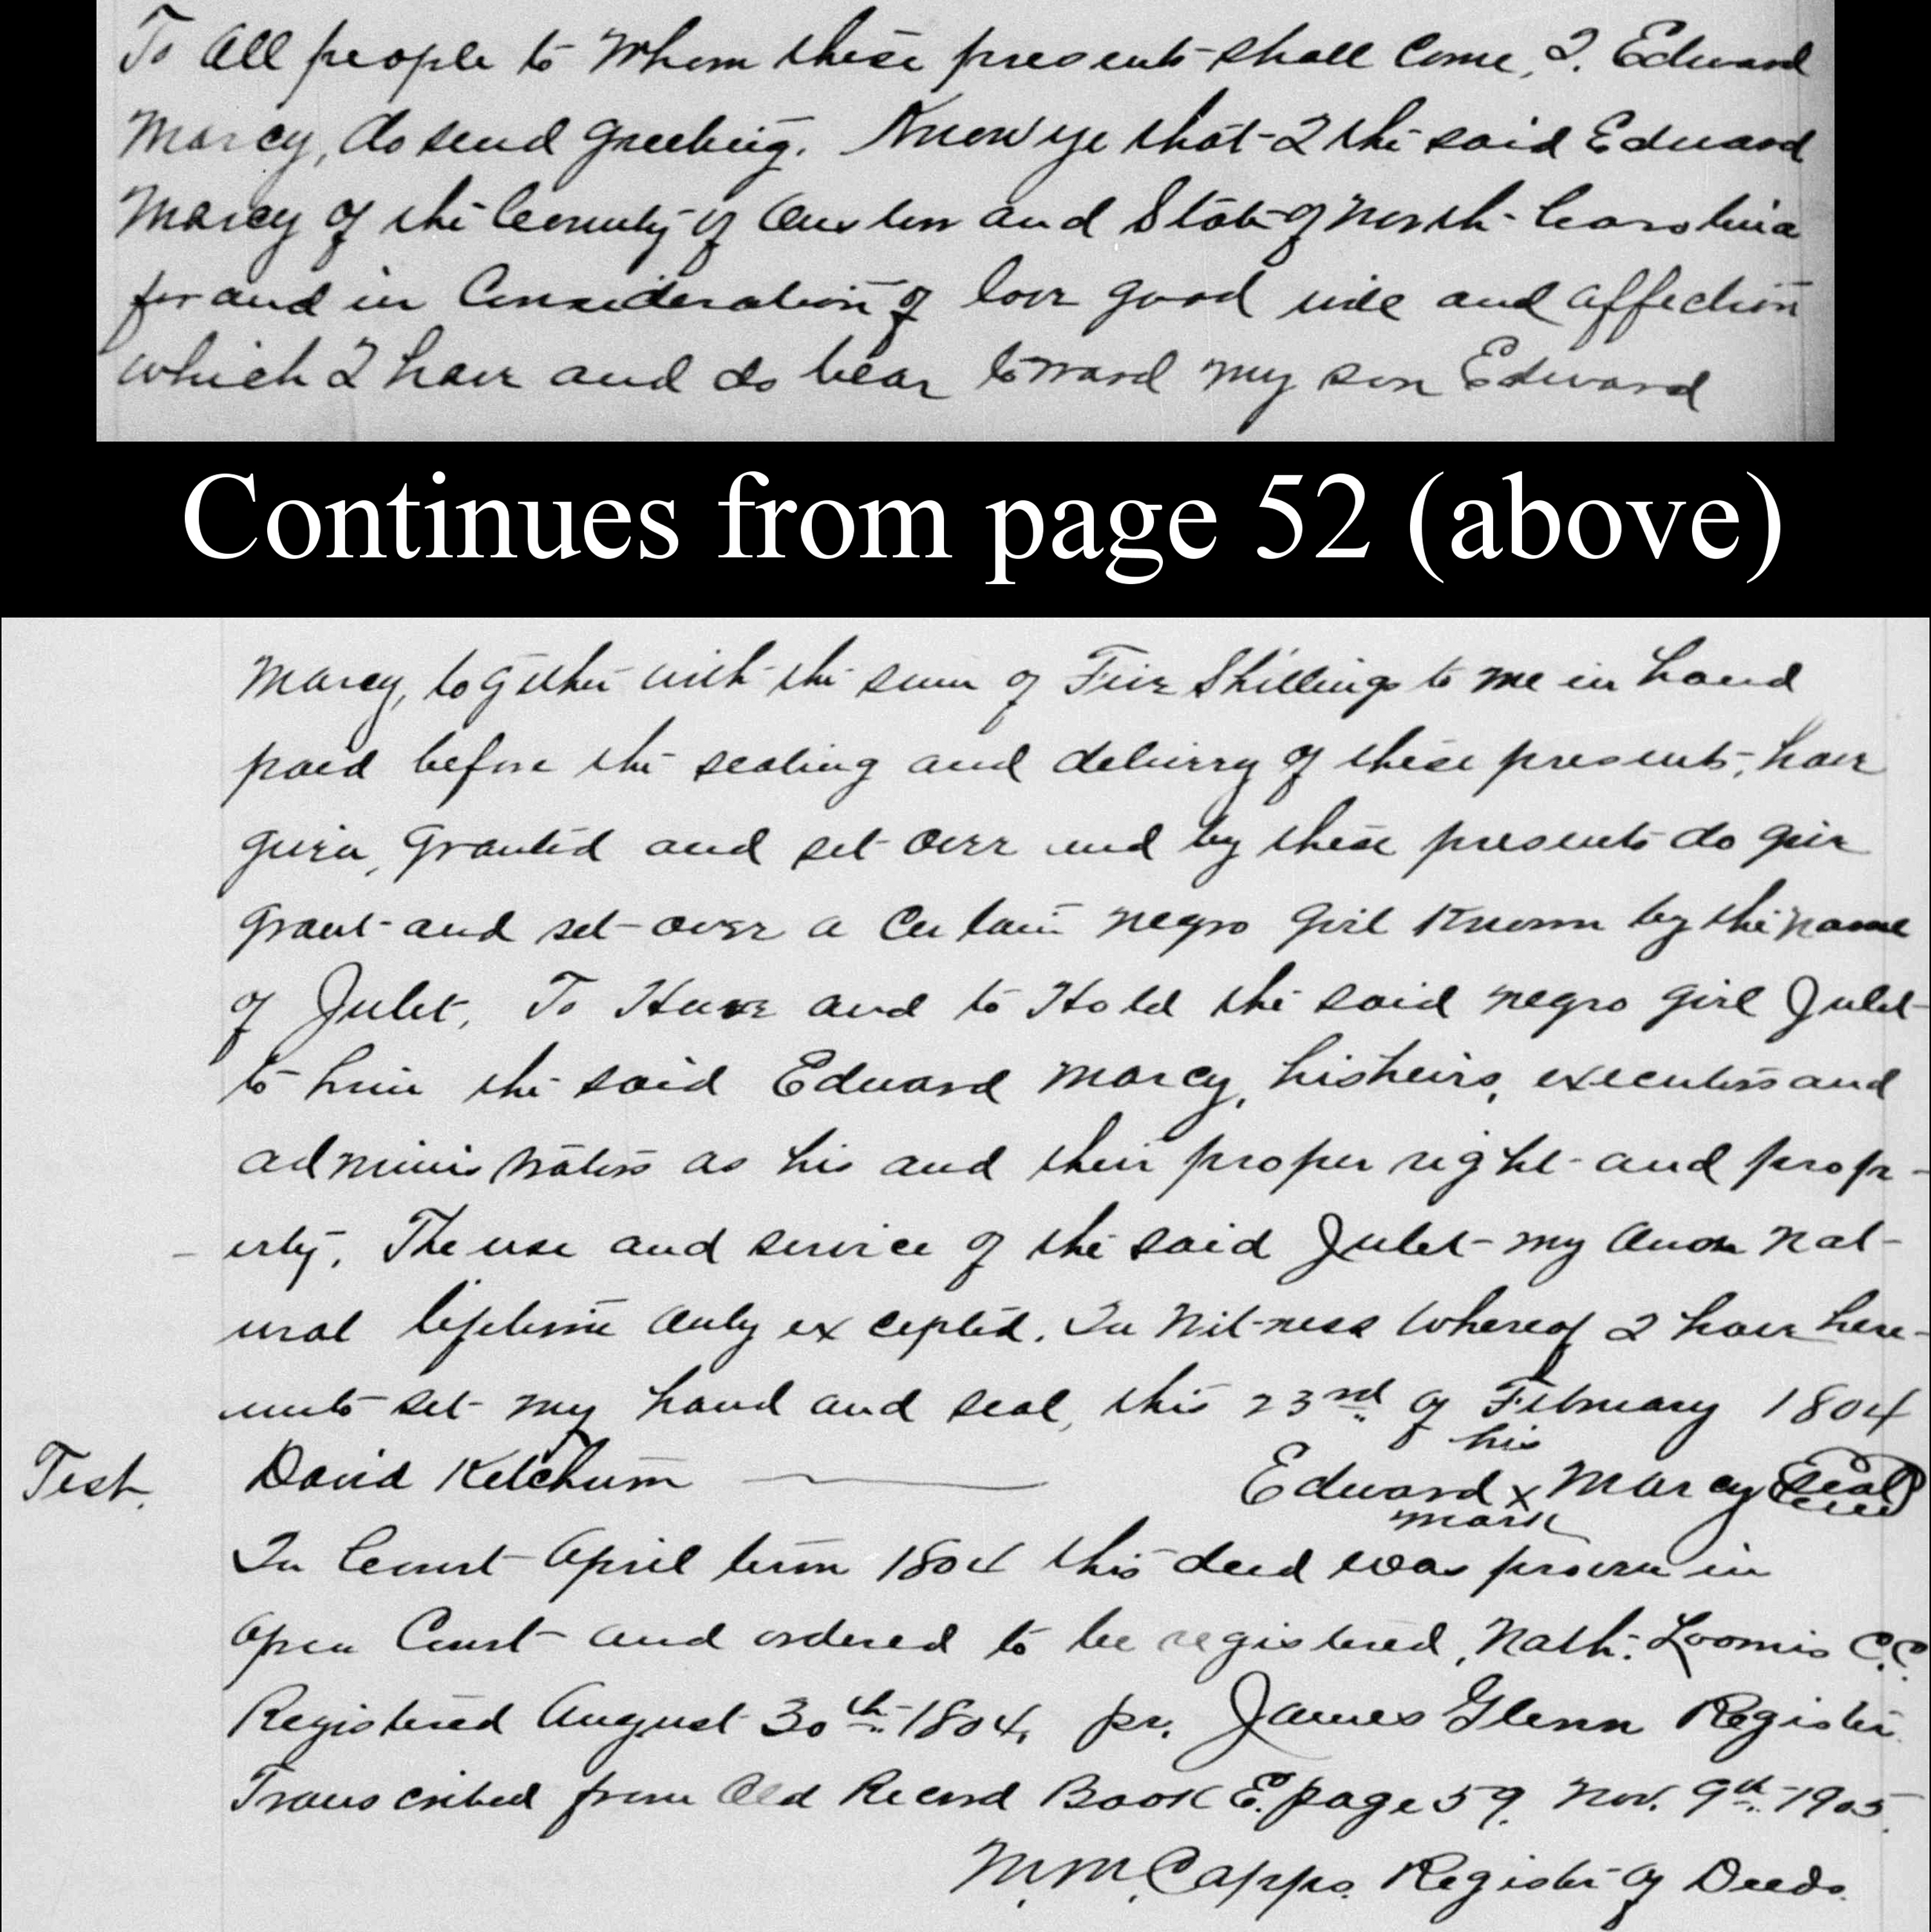 To all people to Whom these presents shall Come, I. Edward
Marcy, do send greeting. Know ye that I the said Edward
Marcy of the County of Onslow and State of North Carolina
for and in Consideration of love good will and affection
which I have and do bear toward my son Edward
Continues from page 52 (above)
Marcy, together with the sum of Five Shillings to me in hand
paid before the sealing and delivery of these presents, have
given, granted and set over and by these presents do give
grant and set over a Certain negro girl Known by the name
of Julet, To Have and to Hold the said negro girl Julet
to him the said Edward Marcy, his heirs, executors and
administrators as his and their proper right and prop-
erty, The use and service of the said Julet my own nat-
ural lifetime only excepted. In Witness Whereof I have here-
unto set my hand and seal, this 23rd of February 1804
Test. David Ketchum Edward his x mark Marcy Seal
In Court April term 1804 this deed was proven in
open Court and ordered to be registered, Nath: Loomis C.C.
Registered August 30th 1804, pr. James Glenn Register.
Transcribed from Old Record Book E. page 59. Nov. 9th 1905.
M. M. Capps. Register of Deeds.